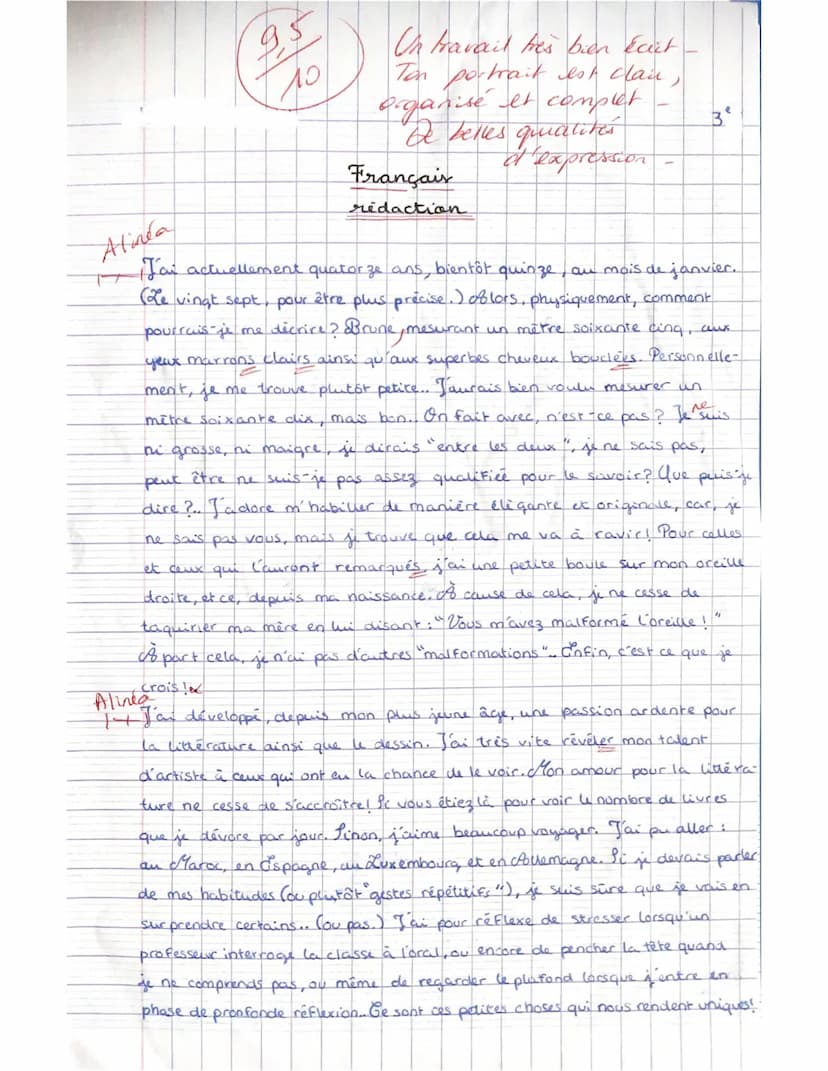 9,5/10
Un travail très bien écrit -
Ton portrait est clair,
organisé et complet -
De belles qualités
d'expression -
3e
Français
rédaction
Alinéa
J'ai actuellement quatorze ans, bientôt quinze, au mois de janvier.
(Le vingt sept, pour être plus précise.) Alors, physiquement, comment
pourrais-je me décrire ? Brune, mesurant un mètre soixante cinq, aux
yeux marrons clairs ainsi qu'aux superbes cheveux bouclées. Personnelle-
ment, je me trouve plutôt petite.. J'aurais bien voulu mesurer un
mètre soixante dix, mais bon.. On fait avec, n'est-ce pas ? Je ne suis
ni grosse, ni maigre, je dirais "entre les deux", je ne sais pas,
peut être ne suis-je pas assez qualifiée pour le savoir ? Que puis-je
dire ?.. J'adore m'habiller de manière élégante et originale, car, je
ne sais pas vous, mais je trouve que cela me va à ravir ! Pour celles
et ceux qui l'auront remarqués, j'ai une petite boule sur mon oreille
droite, et ce, depuis ma naissance. À cause de cela, je ne cesse de
taquinier ma mère en lui disant : "Vous m'avez malformé l'oreille ! "
À part cela, je n'ai pas d'autres "malformations".. Enfin, c'est ce que je
crois !
Alinéa
J'ai développé, depuis mon plus jeune âge, une passion ardente pour
la littérature ainsi que le dessin. J'ai très vite révéler mon talent
d'artiste à ceux qui ont eu la chance de le voir. Mon amour pour la littéra-
ture ne cesse de s'accroître ! Si vous étiez là pour voir le nombre de livres
que je dévore par jour. Sinon, j'aime beaucoup voyager. J'ai pu aller :
au Maroc, en Espagne, au Luxembourg et en Allemagne. Si je devais parler
de mes habitudes (ou plutôt "gestes répétitifs"), je suis sûre que je vais en
surprendre certains.. (ou pas.) J'ai pour réflexe de stresser lorsqu'un
professeur interroge la classe à l'oral, ou encore de pencher la tête quand
je ne comprends pas, ou même de regarder le plafond lorsque j'entre en
phase de pronfonde réflexion.. Ce sont ces petites choses qui nous rendent uniques !